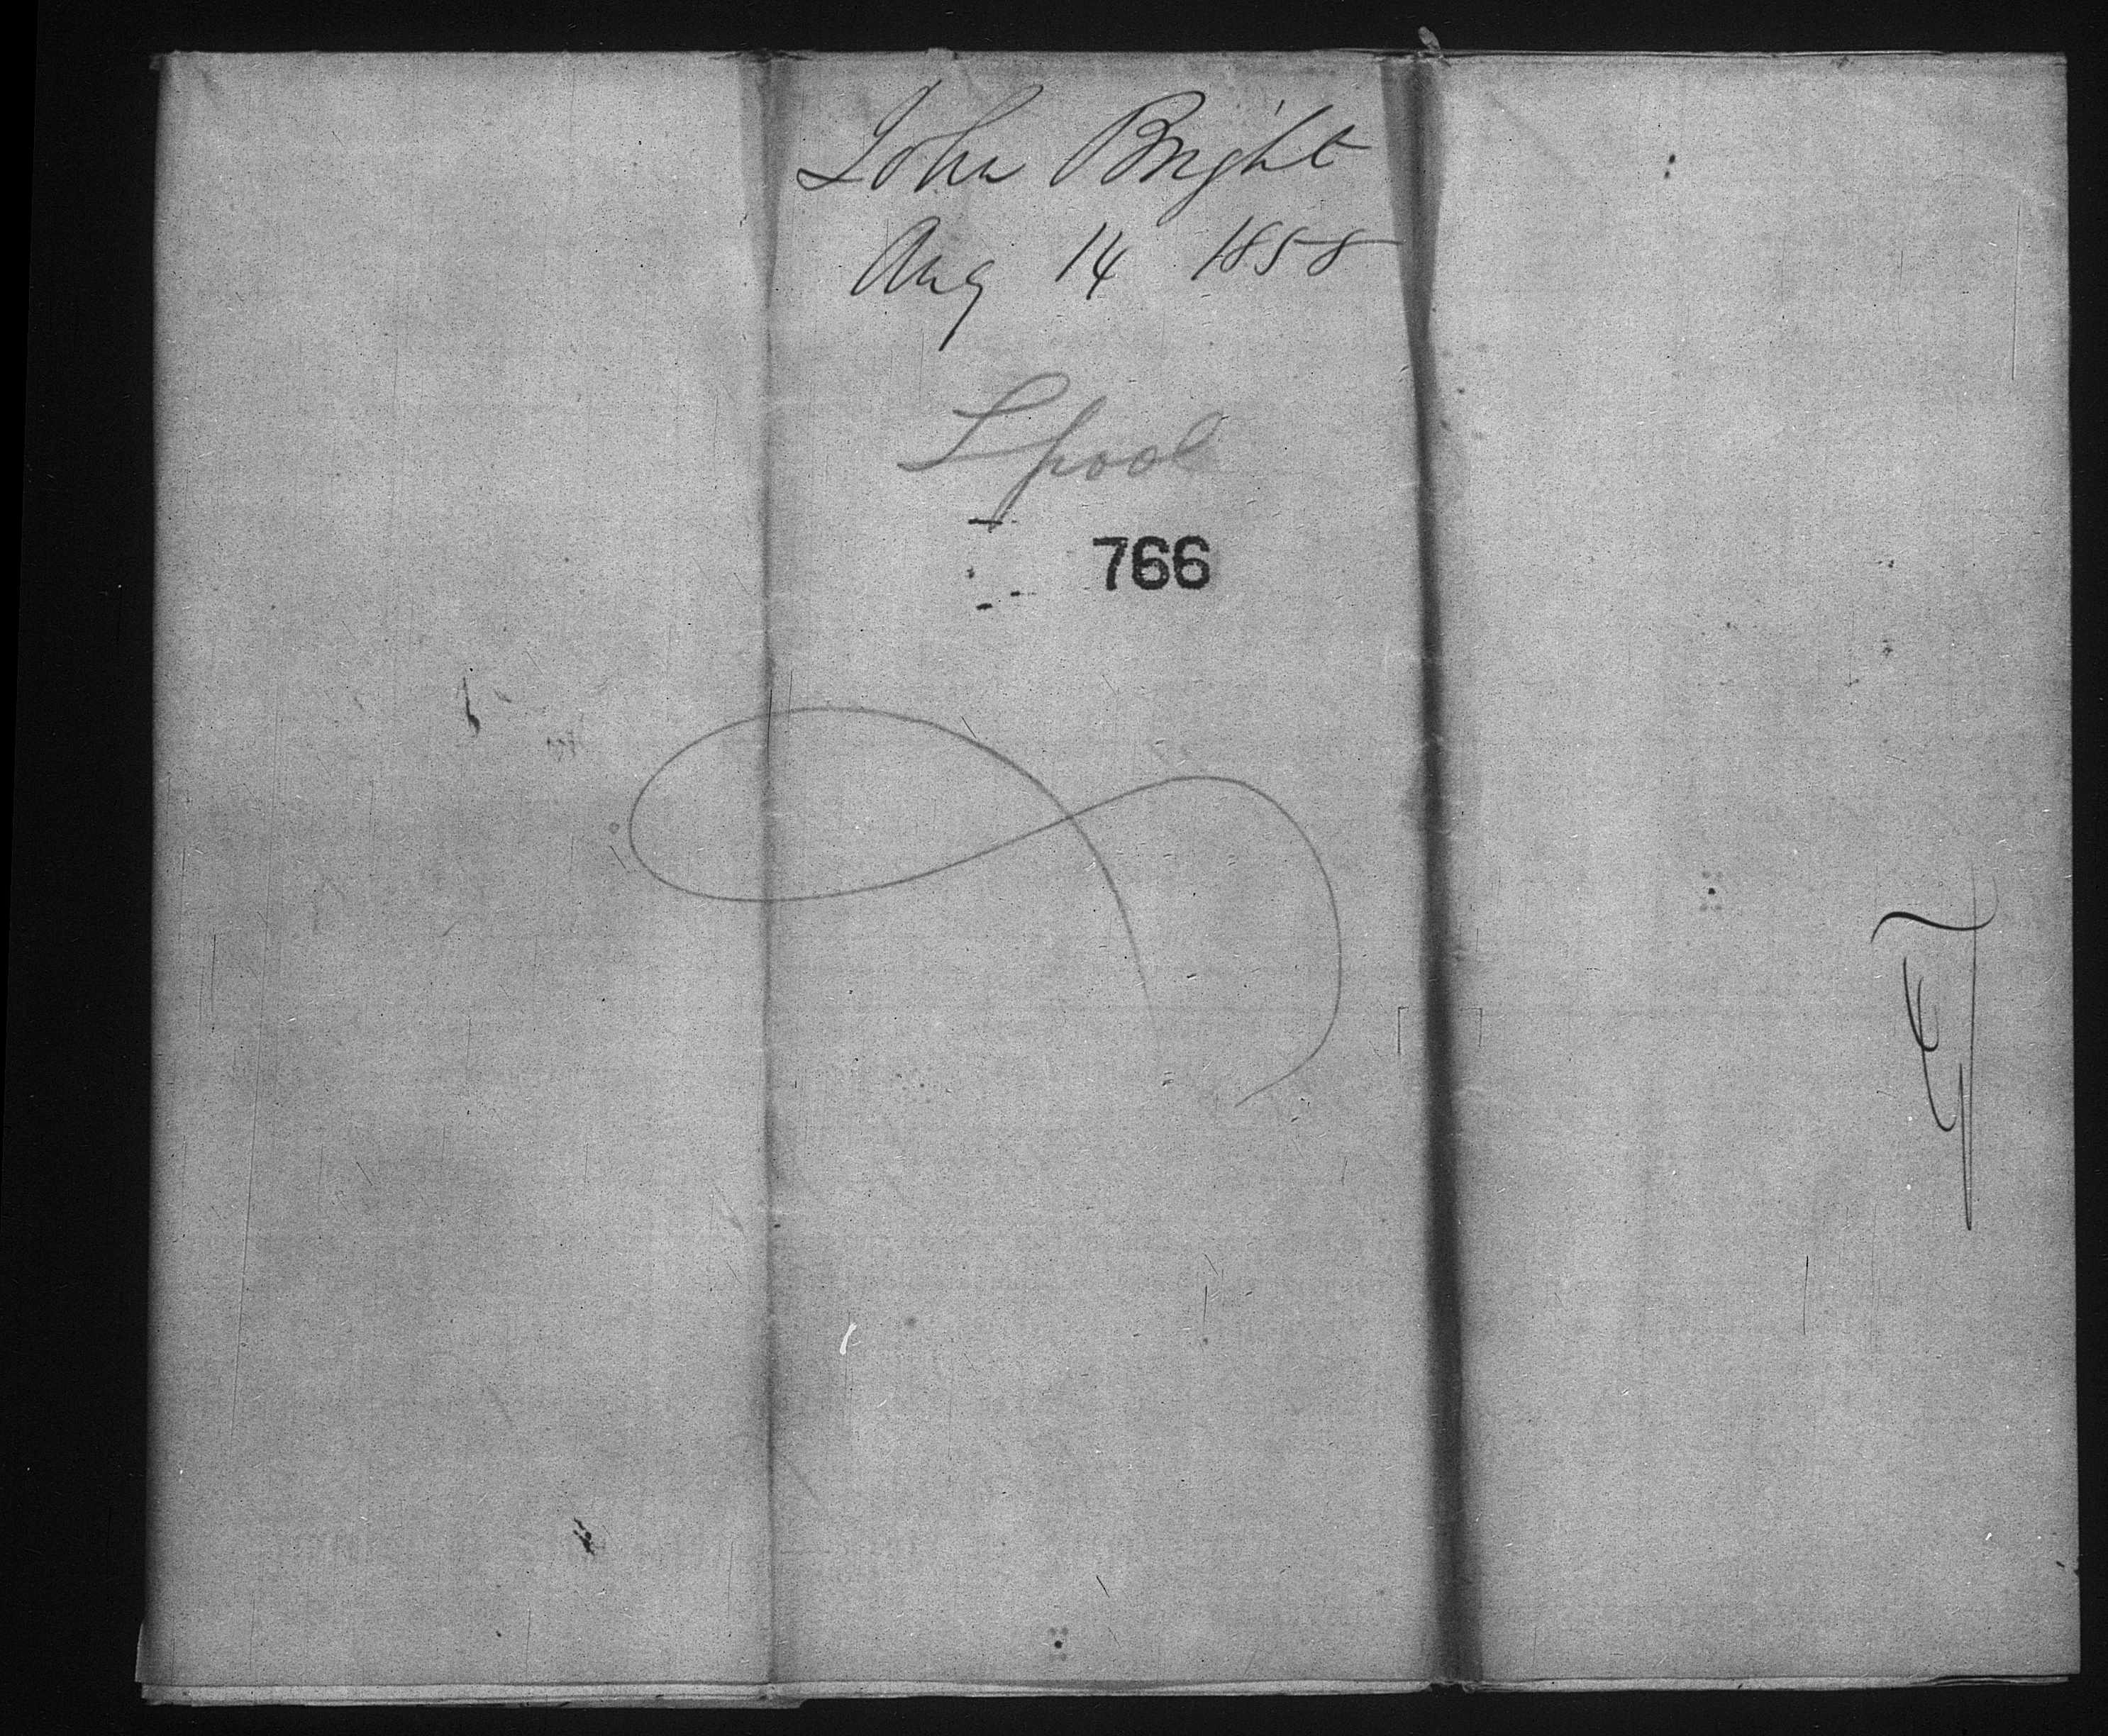 John Bright
Aug 14 1858
Lpool
766